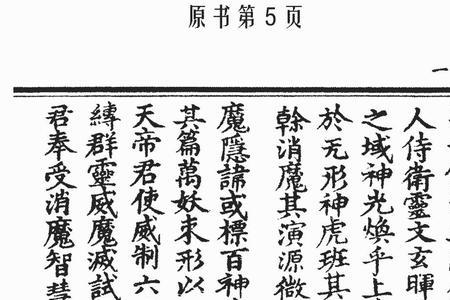 原书第5页
人侍衛靈文玄暉
之域神光煥乎上
於无形神虎班其
幹消魔其演源微
魔隱諱或標百神
其篇萬妖束形以
天帝君使威制六
縛群靈威魔滅試
君奉受消魔智慧